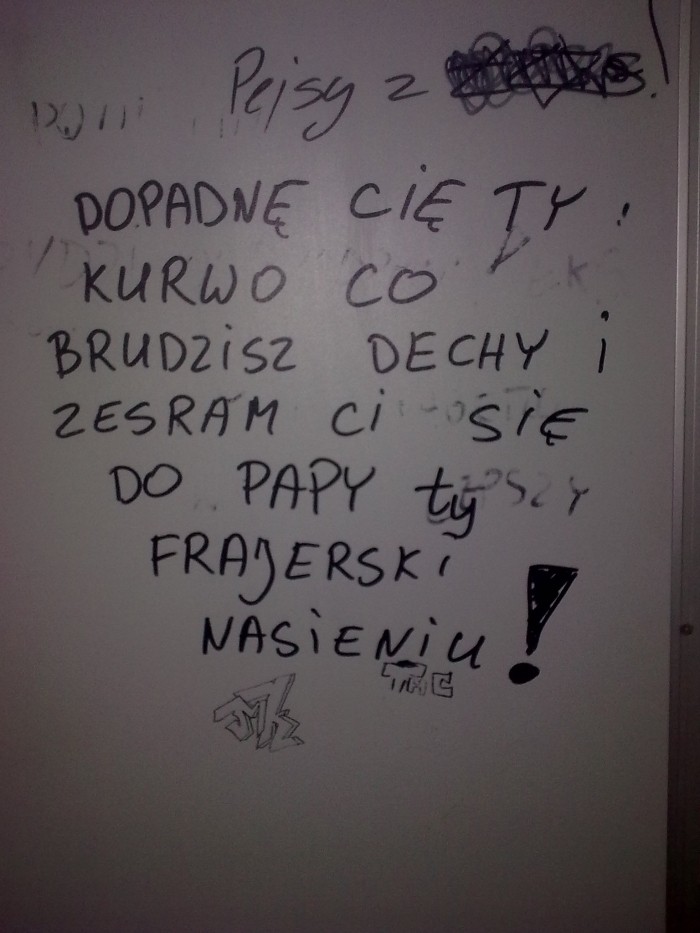 Pejsy z
DOPADNĘ CIĘ TY
KURWO CO
BRUDZISZ DECHY i
ZESRAM Ci SIĘ
DO PAPY ty
FRAJERSKi
NASiENiU!
TMC